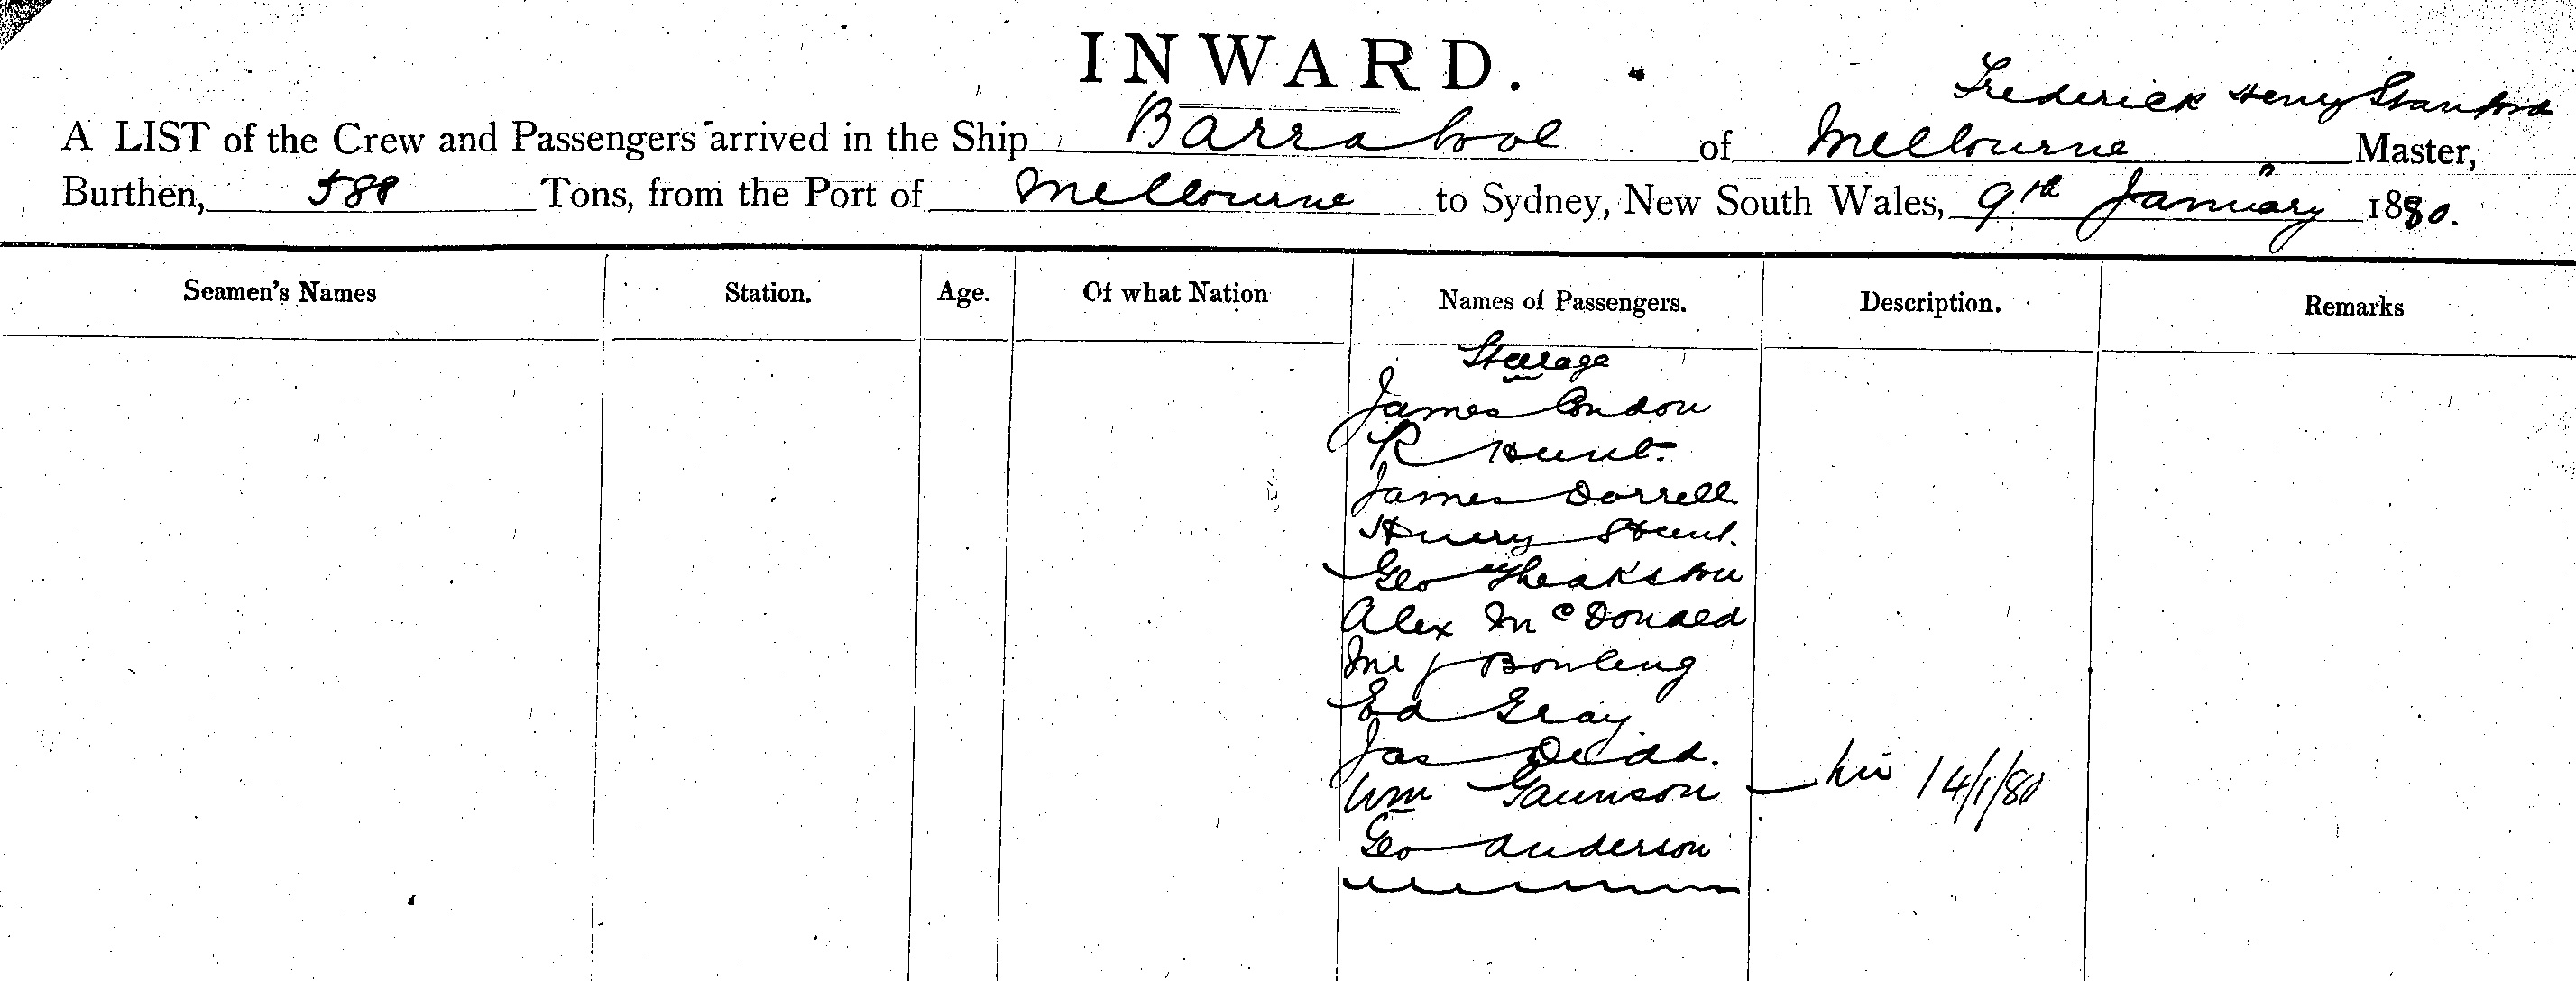 INWARD.
Frederick Henry Stanford
A LIST of the Crew and Passengers arrived in the Ship Barrabool of Melbourne Master,
Burthen, 588 Tons, from the Port of Melbourne to Sydney, New South Wales, 9th January 1880.
Seamen's Names Station. Age. Of what Nation Names of Passengers. Description. Remarks
Steerage
James Condon
R Hunt.
James Dorrell
Henry Hunt.
Geo Theakston
Alex McDonald
Mr J Bowling
Ed Gray
Jas
Wm Gaunson 14/1/80
Geo Anderson